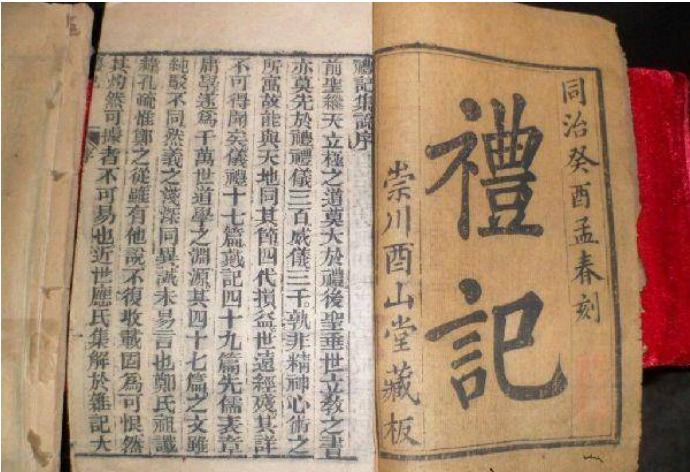 同治癸酉孟春刻
禮記
崇川酉山堂藏板
禮記集說序
前聖繼天立極之道莫大於禮後聖垂世立教之書
亦莫先於禮禮儀三百威儀三千孰非精神心術之
所寓故能與天地同其節四代損益世遠經殘其詳
不可得聞矣儀禮十七篇戴記四十九篇先儒表章
庸學遂爲千萬世道學之淵源其四十七篇之文雖
純駁不同然義之淺深同異誠未易言也鄭氏祖讖
緯孔疏惟鄭之從雖有他說不復收載固爲可恨然
其灼然可據者不可易也近世應氏集解於雜記大
序